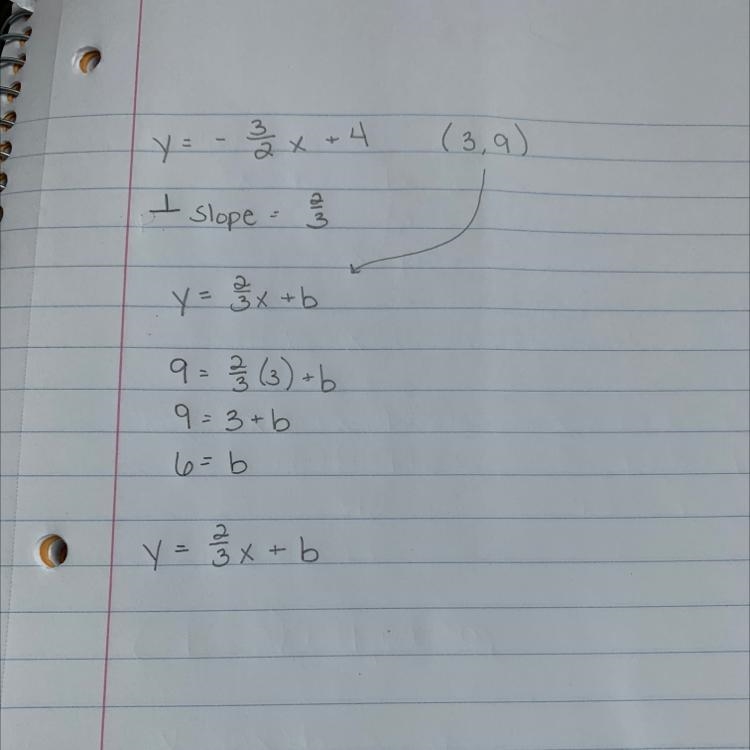 y = - 3/2 x + 4 (3,9)
⊥ slope = 2/3
y = 2/3 x + b
9 = 2/3 (3) + b
9 = 3 + b
6 = b
y = 2/3 x + b